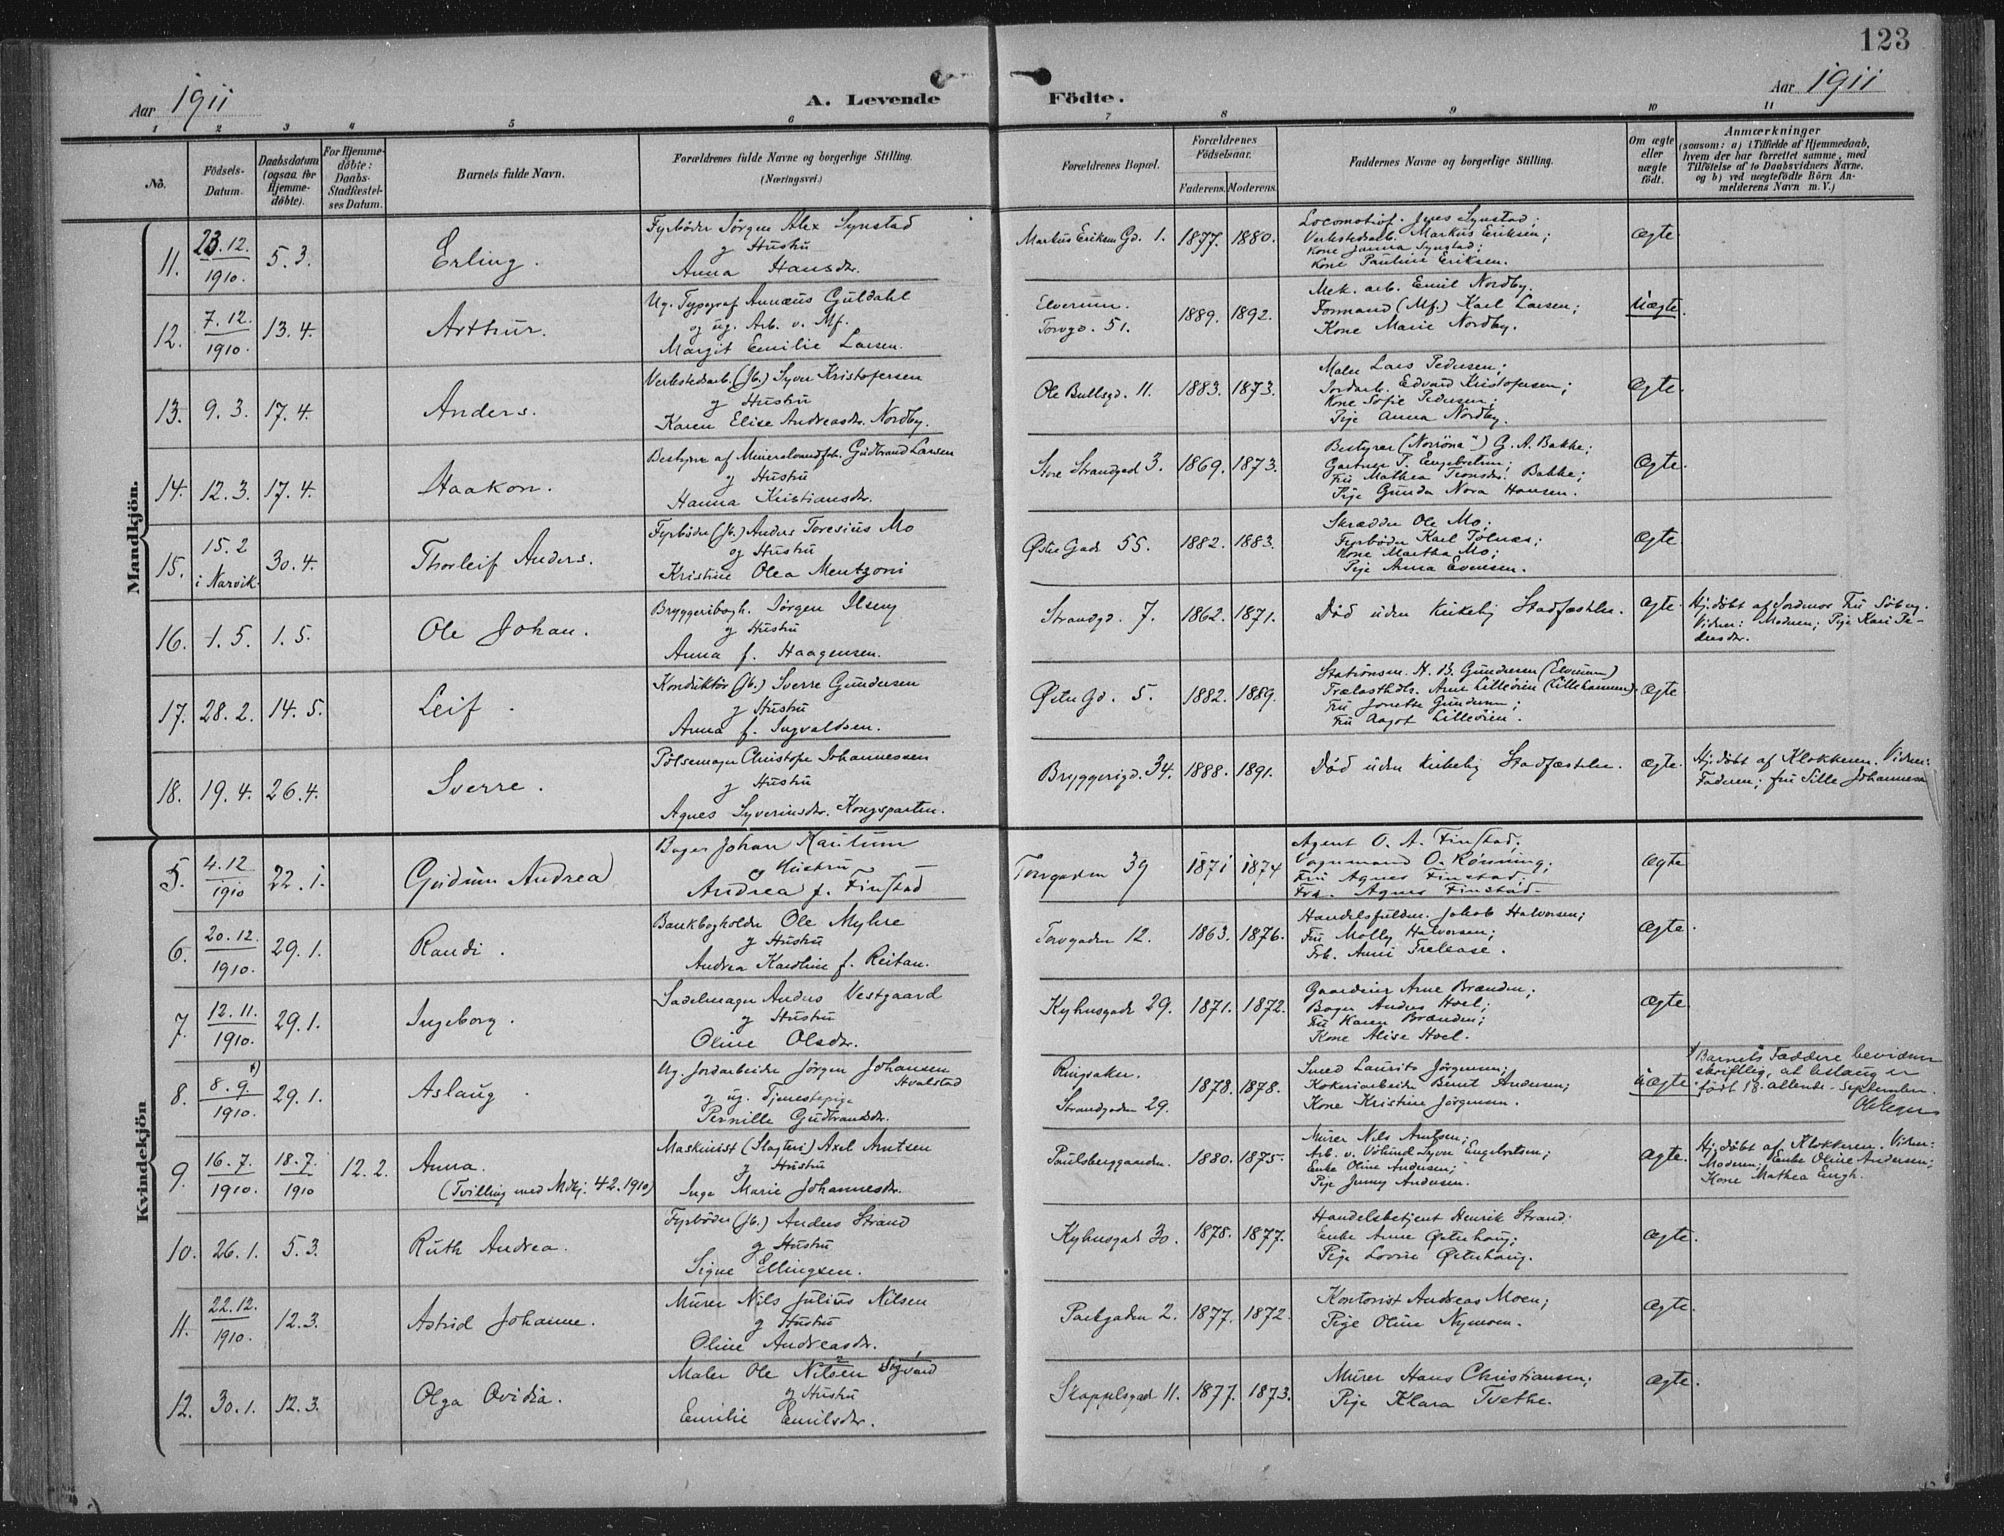 123
Aar 1911
A. Levende Födte.
Aar 1911
1 2 3 4 5 6 7 8 9 10 11
No.
Födsels-Datum.
Daabsdatum (ogsaa for Hjemme-döbte).
For Hjemme-döbte: Daabs-Stadfæstel-ses Datum.
Barnets fulde Navn.
Forældrenes fulde Navne og borgerlige Stilling.
(Næringsvei.)
Forældrenes Bopæl.
Forældrenes Födselsaar.
Faderens. Moderens.
Faddernes Navne og borgerlige Stilling.
Om ægte eller uægte födt.
Anmærkninger
(saasom: a) i Tilfælde af Hjemmedaab, hvem der har forrettet samme, med Tilföielse af to Daabsvidners Navne. og b) ved uægtefödte Börn An-melderens Navn m. V.)
Mandkjön.
11. 23.12. 1910. 5.3. Erling.
Fyrbøder Jörgen Alex Synstad
og Hustru
Anna Hansdr.
Markus Eriksen Gd. 1. 1877. 1880.
Verkstedsarb. Markus Eriksen;
Kone Janna Synstad;
Kone Pauline Eriksen.
Ægte.
12. 7.12. 1910. 13.4. Arthur.
Ug. Typograf Annæus Guldahl
og ug. Arb. v. Mf.
Margit Emilie Larsen.
Elverum.
Torvgd. 51. 1889. 1892.
Mek. arb. Emil Nordby.
Formand (Mf.) Karl Larsen;
Kone Marie Nordby.
Uægte.
13. 9.3. 17.4. Anders.
Verkstedsarb. (Jb.) Syver Kristofersen
og Hustru
Karen Elise Andreasdr. Nordby.
Ole Bullsgd. 11. 1883. 1873.
Maler Lars Pedersen;
Jordarb. Edvard Kristofersen;
Kone Sofie Pedersen;
Pige Anna Nordby.
Ægte.
14. 12.3. 17.4. Haakon.
Bestyrer af Mineralvandfab. Gudbrand Larsen
og Hustru
Hanna Kristiansdr.
Store Strandgad 3. 1869. 1873.
Bestyrer ("Norröna") G. A. Bakke;
Gartner T. Engebretsen;
Fru Mathea Bakke;
Pige Gunda Nora Hansen.
Ægte.
15. 15.2 i Narvik 30.4. Thorleif Anders.
Fyrbøder (Jb.) Anders Toresius Mo
og Hustru
Kristine Olea Mentzoni
Østre Gade 55. 1882. 1883.
Skrædder Ole Mo;
Fyrbøder Karl Tölnæs;
Kone Martha Mo;
Pige Anna Evensen.
Ægte
16. 1.5. 1.5. Ole Johan.
Bryggeribogh. Jörgen Ilseng
og Hustru
Anna f. Haagensen.
Strandgd. 7. 1862. 1871.
Død uden kirkelig Stadfæstelse.
Ægte.
Hj.döbt af Jordmor Fru Söberg.
Vidner: Moderen; Pige Kari Pe-
dersdr.
17. 28.2. 14.5. Leif.
Konduktör (Jb.) Sverre Gundersen
og Hustru
Anna f. Ingvaldsen.
Østre Gd. 5. 1882. 1889.
Stationsm. H. B. Gundersen (Elverum)
Trælasthdl. Arne Lilleöien (Lillehammer).
Fru Jonette Gundersen;
Fru Aagot Lilleöien.
Ægte
18. 19.4. 26.4. Sverre.
Pölsemager Christofer Johannessen
og Hustru
Agnes Syverinsdr. Kongsparten.
Bryggerigd. 34. 1888. 1891.
Død uden kirkelig Stadfæstelse.
Ægte.
Hj.döbt af Klokkeren. Vidner:
Faderen; fru Sille Johannesen
Kvindekjön
5. 4.12 1910 22.1. Gudrun Andrea
Bager Johan Kautum
og Hustru
Andrea f. Finstad
Torvgaden 39 1871 1874
Agent O. A. Finstad;
Vognmand O. Rönning;
Fru Agnes Finstad;
Frk. Agnes Finstad.
Ægte
6. 20.12. 1910. 29.1. Randi.
Bankbogholder Ole Myhre
og Hustru
Andrea Karoline f. Reitan.
Torvgaden 12. 1863. 1876.
Handelsfuldm. Jakob Halvorsen;
Fru Molly Halvorsen;
Frk. Anni Trelease.
Ægte.
7. 12.11. 1910. 29.1. Ingeborg.
Sadelmager Anders Vestgaard
og Hustru
Oline Olsdr.
Kyhusgade 29. 1871. 1872.
Gaardeier Arne Brænden;
Bager Anders Hoel;
Fru Karen Brænden;
Kone Alise Hoel.
Ægte
8. 8.9. x) 1910. 29.1. Aslaug
Ug. Jordarbeider Jörgen Johansen
Hvalstad
og ug. Tjenestepige
Pernille Gudbrandsdr.
Ringsaker.
Strandgaden 29. 1878. 1878.
Smed Laurits Jörgensen;
Kokeriarbeider Bernt Andersen;
Kone Kristine Jörgensen.
Uægte.
x) Barnets Faddere bevidner
skriftlig, at Aslaug er
født 18. allende September.
9. 16.7. 1910. 18.7. 1910 12.2. Anna.
(Tvilling med Mdkj. 42. 1910)
Maskinist (Slagteri) Axel Arntsen
og Hustru
Inga Marie Johannesdr.
Paulsberggaarden. 1880. 1875.
Murer Nils Arntsen;
Arb. v. Vølund Syver Engebretsen;
Enke Oline Andersen;
Pige Jenny Andersen.
Ægte.
Hj.döbt af Klokkeren. Vidner:
Moderen; Enke Oline Andersen;
Kone Mathea Engh.
10. 26.1. 5.3. Ruth Andrea.
Fyrbøder (Jb.) Anders Strand
og Hustru
Signe Ellingsen.
Kyhusgad 30. 1878. 1877.
Handelsbetjent Henrik Strand.
Enke Anne Østerhaug;
Pige Lovise Østerhaug.
Ægte.
11. 22.12. 1910. 12.3. Astrid Johanne.
Murer Nils Julius Nilsen
og Hustru
Oline Andreasdr.
Parkgaden 2. 1877. 1872.
Kontorist Andreas Moen;
Pige Oline Nymoen.
Ægte.
12. 30.1. 12.3. Olga Ovidia.
Maler Ole Nilsen Sigvard
og Hustru
Emilie Emilsdr.
Skappelsgad 11. 1877. 1873.
Murer Hans Christiansen;
Pige Klara Tvethe.
Ægte.